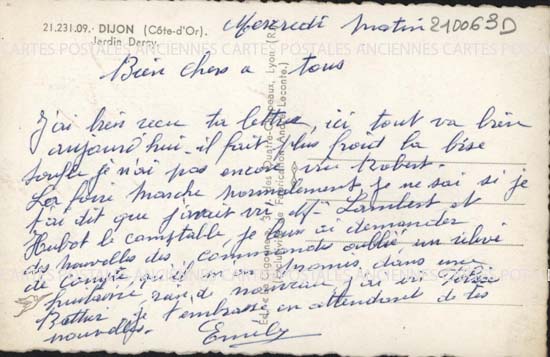 21.231.09. - DIJON (Côte-d'Or).
Jardin Darcy
Mercredi matin 210063D
CARTES POSTALES ANCIENNES CARTES POSTALES ANCIENNES
Bien chers a tous
J'ai bien recu ta lettre, ici tout va bien
aujourd'hui il fait plus froid la bise
soufle je n'ai pas encore vu Robert.
La foire marche normalement, je ne sai si je
t'ai dit que j'avait vu Mr Lambert et
Hubot le comptable je leur ai demander
des nouvelles des commandes oublié un relevé
de compte qu'il m'on promis dans une
rien de nouveau j'ai vu
je t'embrasse en attendant de tes
nouvelles. Emily